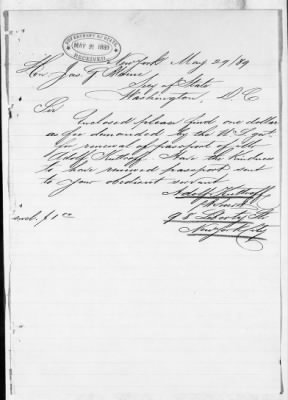 DEPARTMENT OF STATE
MAY 31 1889
RECEIVED
New York May 29/89
Hon. Jas G Blaine
Secy of State
Washington, D.C
Sir
Enclosed please find one dollar
as fee demanded by the U.S. Govt.
for renewal of passport of Mr
Adolf Kuttroff. Have the kindness
to have renewed passport sent
to your obedient servant
Adolf Kuttroff
98 Liberty St.
New York City
encl. $1 00